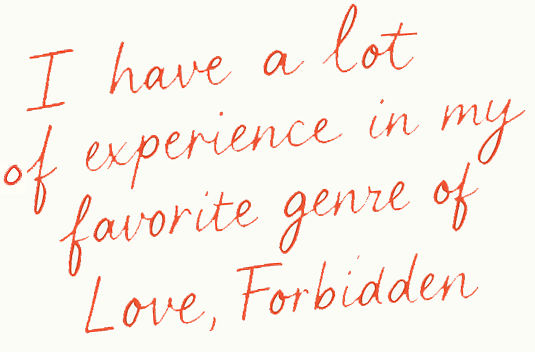 I have a lot
of experience in my
favorite genre of
Love, Forbidden